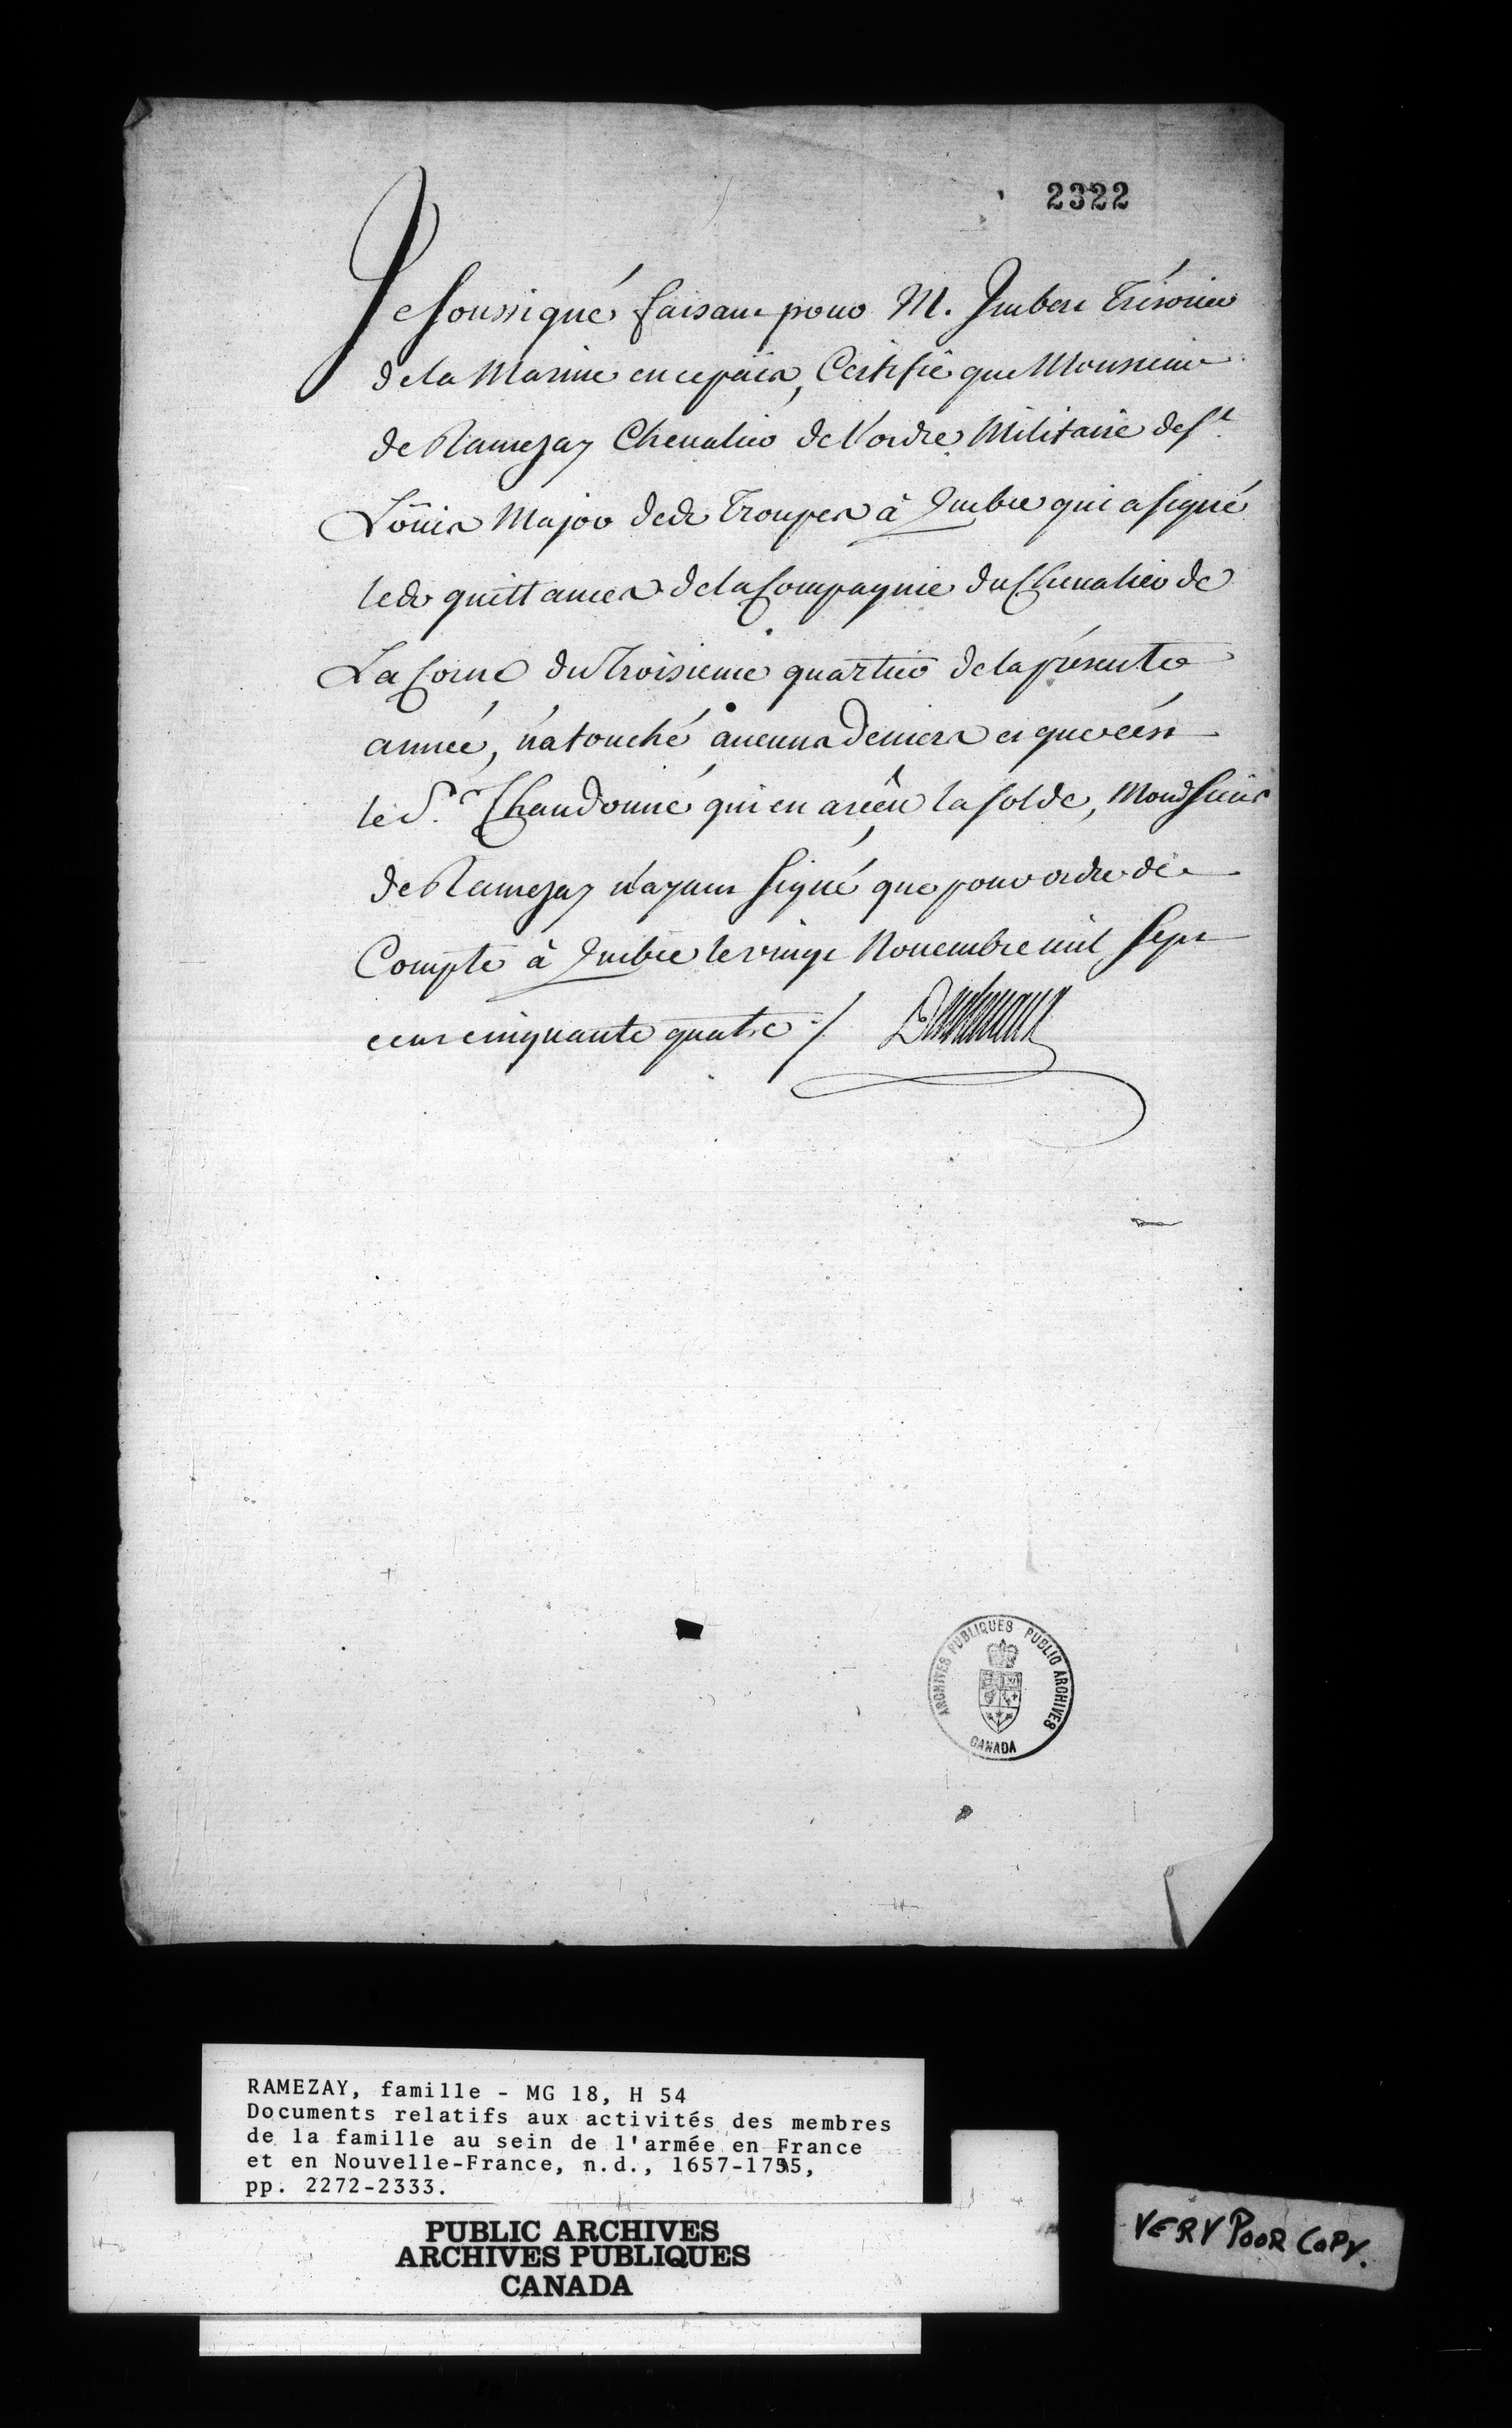 2322
Je soussigné faisant pour M. Imbert Trésorier
de la Marine en ce païs, Certifie que Monsieur
de Ramezay Chevalier de l'ordre Militaire de St.
Loüis Major des Troupes à Québec qui a signé
les quittances de la Compagnie du Chevalier de
La Corne du Troisieme quartier de la présente
année, n'a touché aucuns deniers et que c'ést
le Sr. Chandonné qui en a reçû la solde, Mond Sieur
de Ramezay n'ayant signé que pour ordre de
Compte à Québec le vingt Novembre mil sept
cent cinquante quatre ./.
ARCHIVES PUBLIQUES PUBLIC ARCHIVES
CANADA
RAMEZAY, famille - MG 18, H 54
Documents relatifs aux activités des membres
de la famille au sein de l'armée en France
et en Nouvelle-France, n.d., 1657-1755,
pp. 2272-2333.
PUBLIC ARCHIVES
ARCHIVES PUBLIQUES
CANADA
VERY POOR COPY.